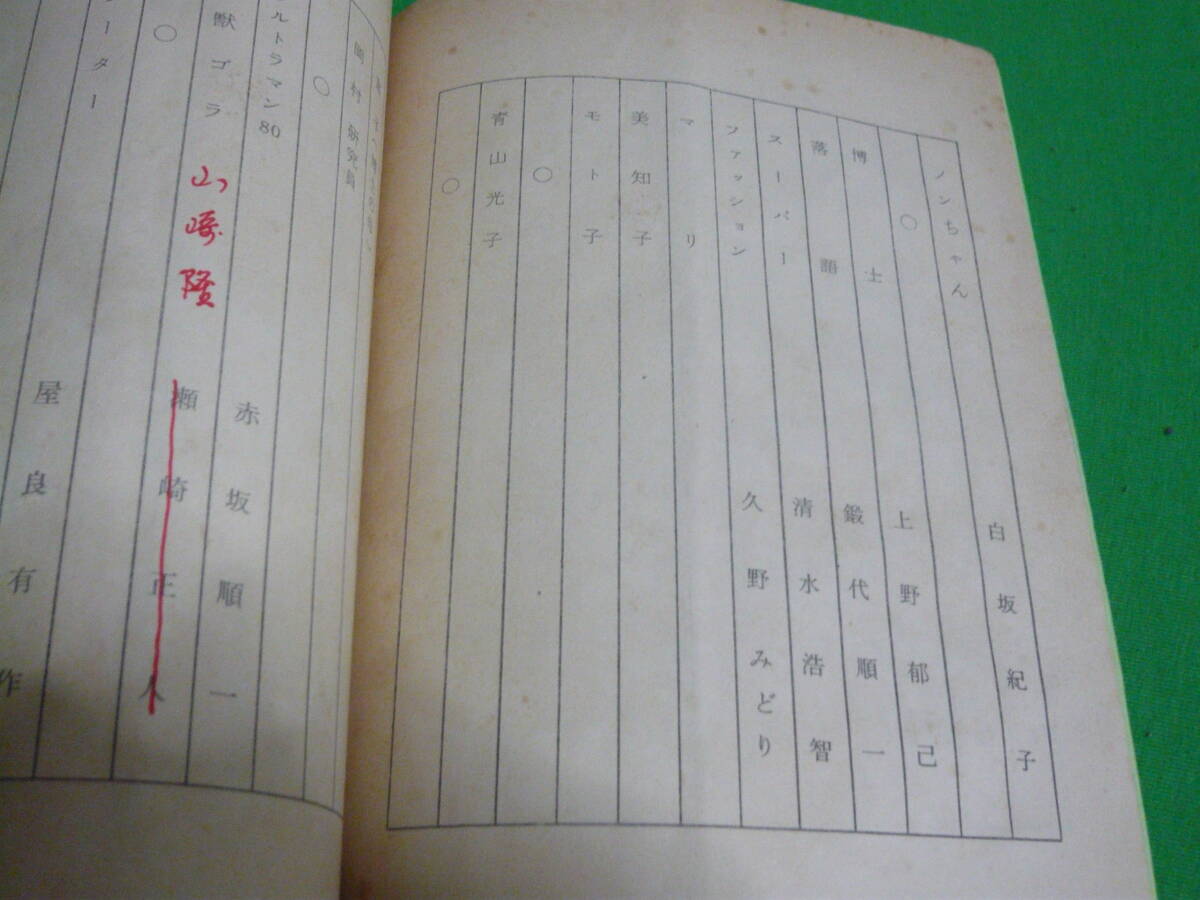 ノンちゃん　白坂紀子
○
博士　上野郁己
落語　鍛代順一
スーパー　清水浩智
ファッション　久野みどり
マリ
美知子
モト子
○
青山光子
○
岡村
○
ルトラマン80　赤坂順一
獣ゴラ　山崎隆　瀬崎正人
○
ーター　屋良有作